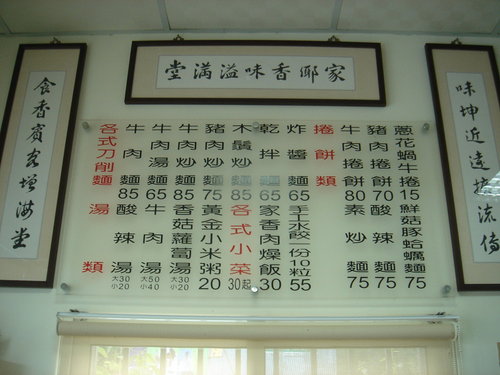 家鄉香味溢滿堂
味坤近遠坊流傳
蔥花蝸牛捲15 鮮菇豚蛤蠣麵75
豬肉捲餅70 酸辣麵75
牛肉捲餅80 素炒麵75
捲餅類
炸醬麵65 手工水餃 份10粒55
乾拌麵65 家香肉燥飯30
木鬚炒麵85 各式小菜 30起
豬肉炒麵75 黃金小米粥20
牛肉炒麵85 香菇蘿蔔湯 大30 小20
牛肉湯麵65 牛肉湯 大50 小40
牛肉麵85 酸辣湯 大30 小20
各式刀削麵 湯類
食香賓客增滿堂